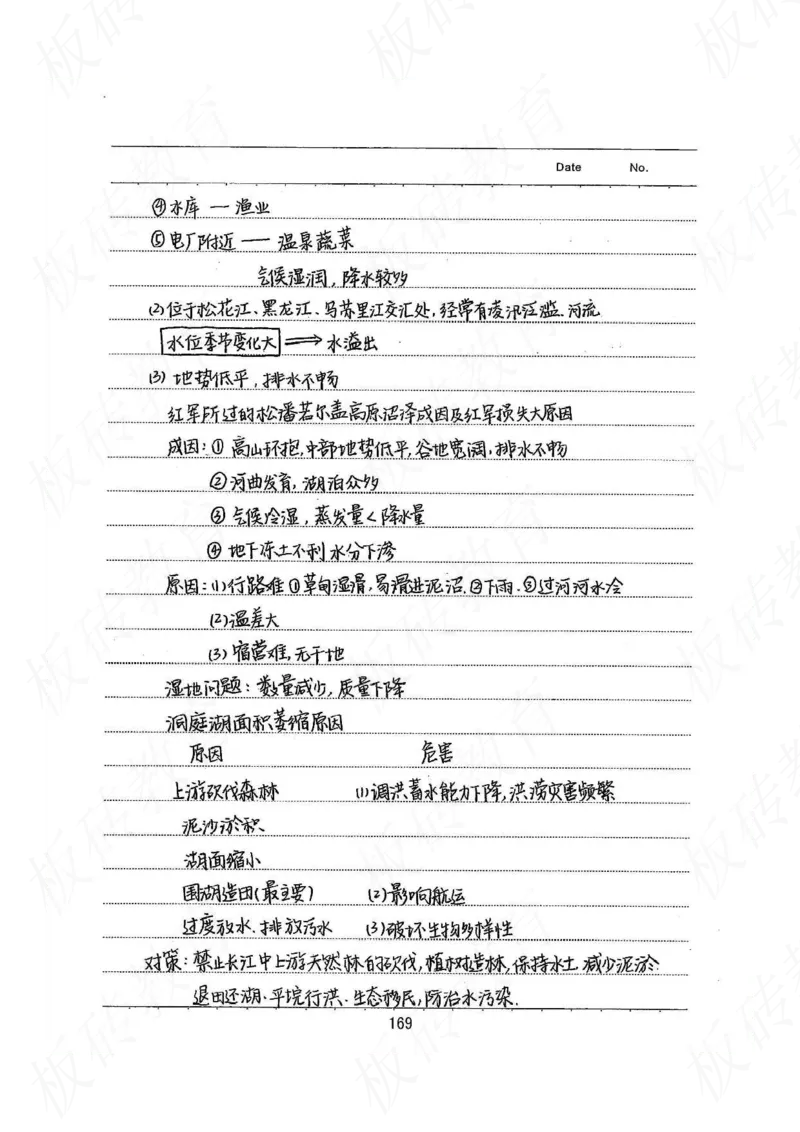 Date No.
④水库 — 渔业
⑤电厂附近 — 温泉蔬菜
气候湿润，降水较多
(2)位于松花江、黑龙江、乌苏里江交汇处，经常有凌汛泛滥.河流
水位季节变化大 ⟹ 水溢出
(3) 地势低平，排水不畅
红军所过的松潘若尔盖高原沼泽成因及红军损失大原因
成因：① 高山环抱，中部地势低平，谷地宽阔，排水不畅
② 河曲发育，湖泊众多
③ 气候冷湿，蒸发量＜降水量
④ 地下冻土不利水分下渗
原因：(1)行路难①草甸湿滑，易滑进泥沼.②下雨.③过河河水冷
(2)温差大
(3)宿营难，无干地
湿地问题：数量减少，质量下降
洞庭湖面积萎缩原因
原因 危害
上游砍伐森林 (1)调洪蓄水能力下降，洪涝灾害频繁
泥沙淤积
湖面缩小
围湖造田(最主要) (2)影响航运
过度放水、排放污水 (3)破坏生物多样性
对策：禁止长江中上游天然林的砍伐，植树造林，保持水土.减少泥淤.
退田还湖.平垸行洪.生态移民，防治水污染.
169
板砖教育